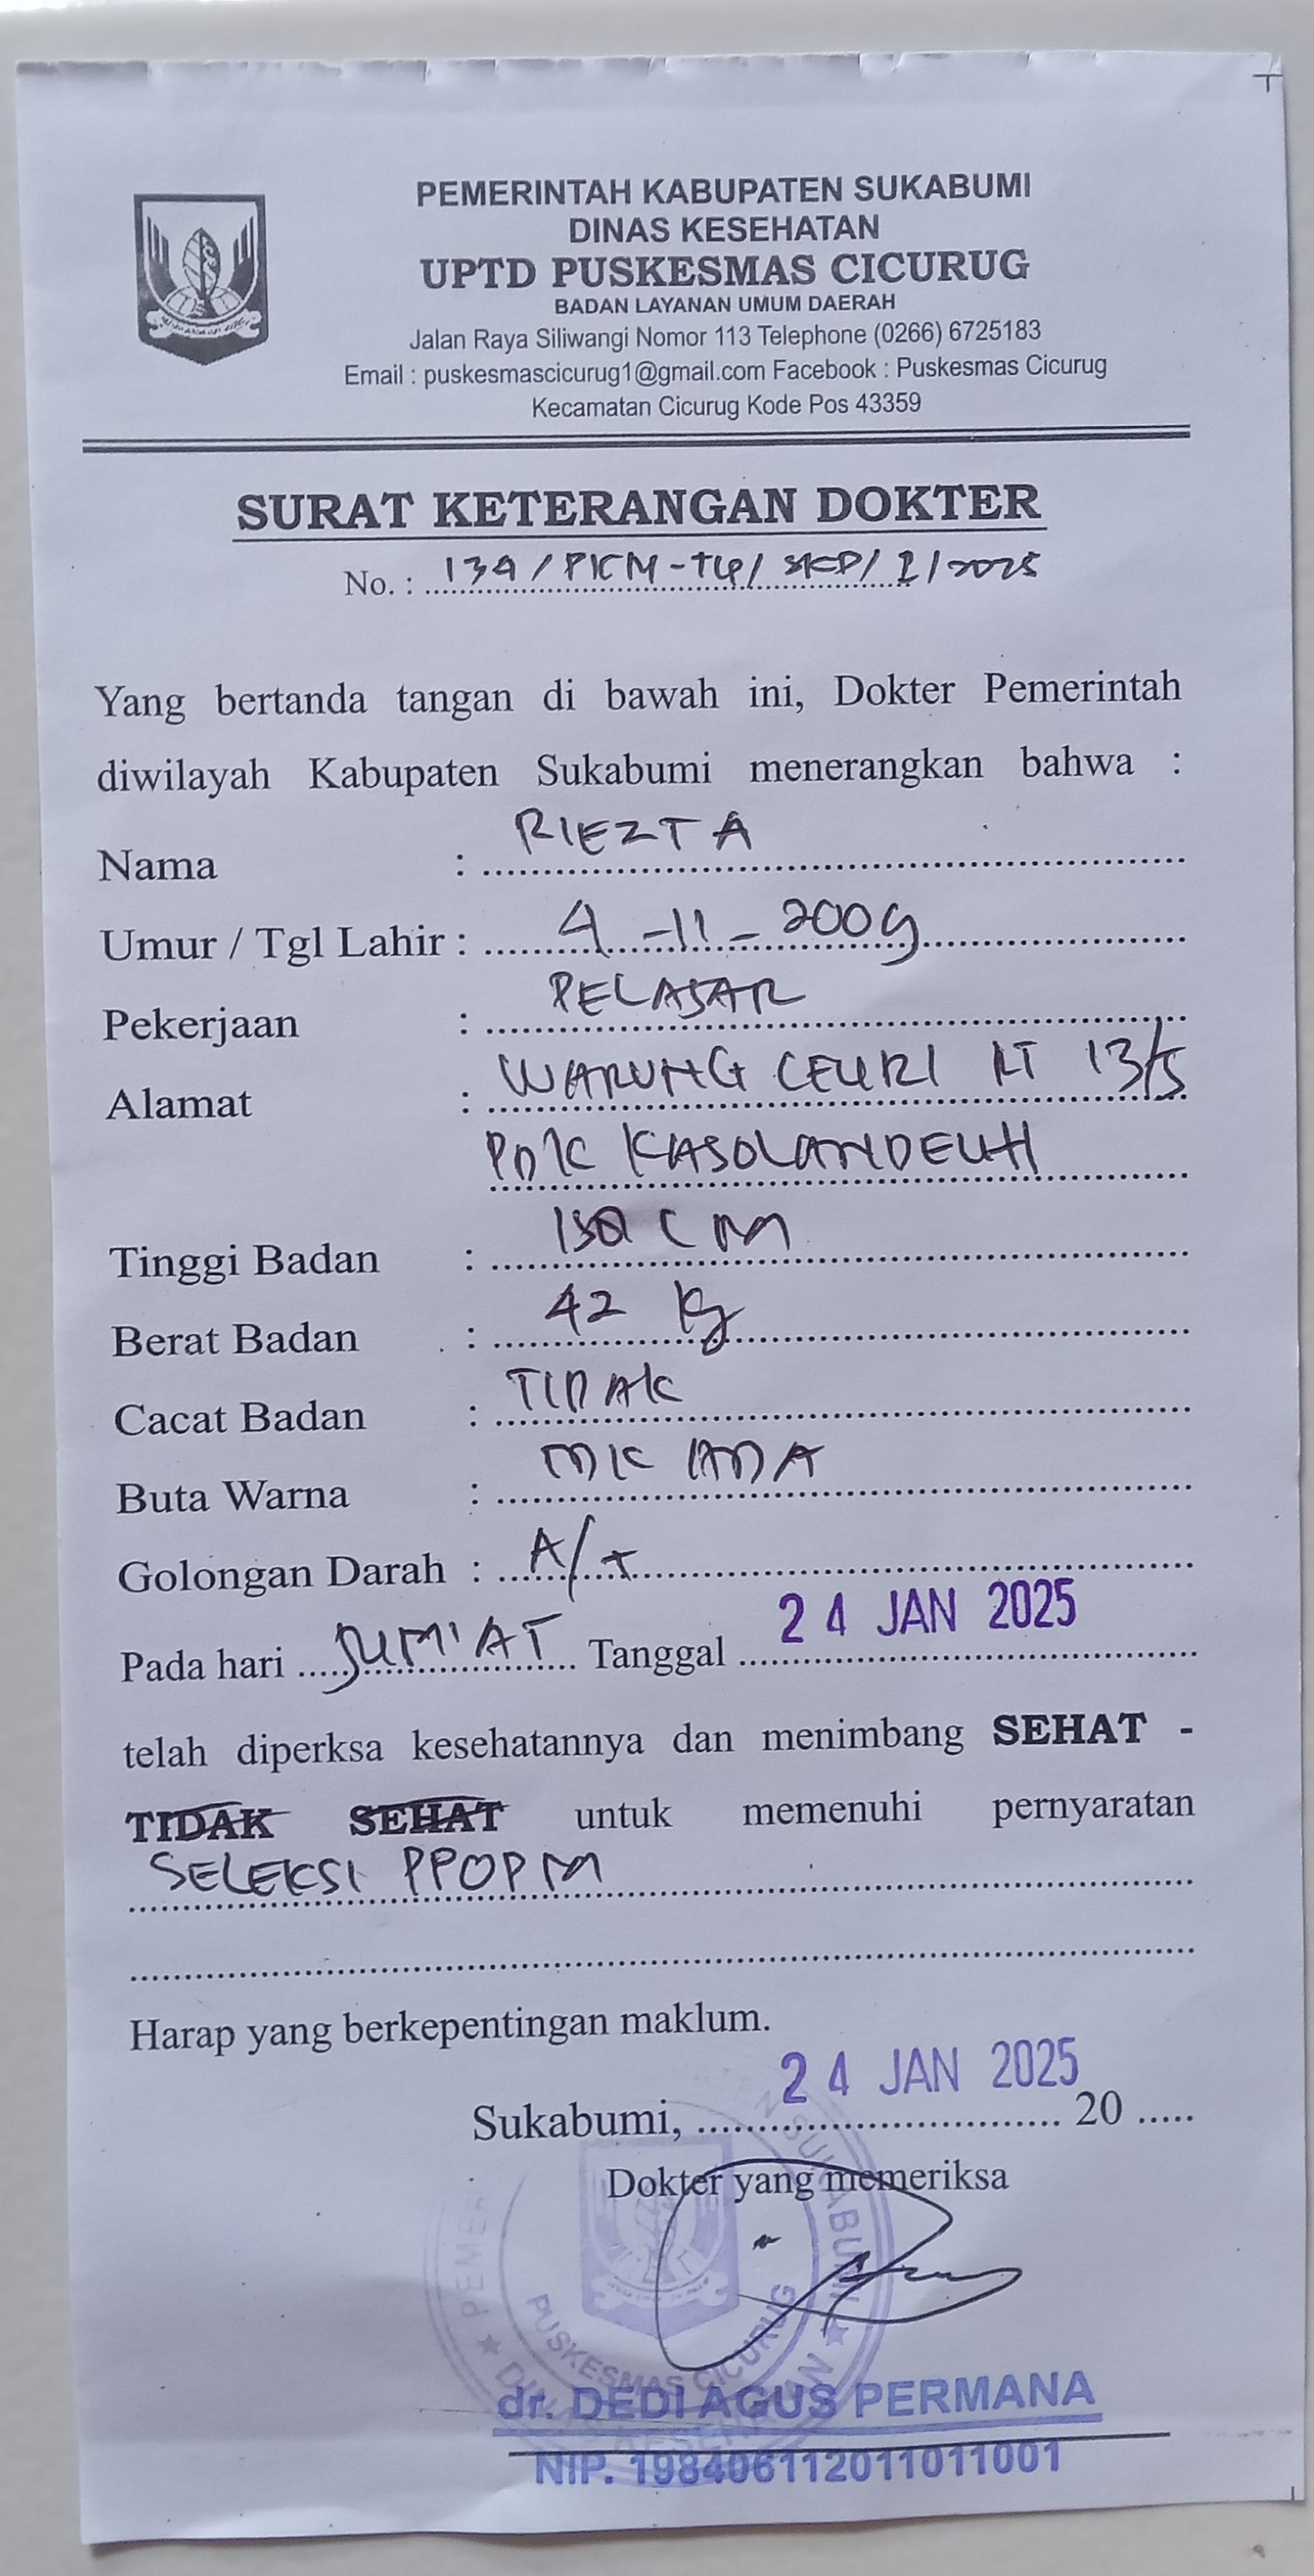 PEMERINTAH KABUPATEN SUKABUMI
DINAS KESEHATAN
UPTD PUSKESMAS CICURUG
BADAN LAYANAN UMUM DAERAH
Jalan Raya Siliwangi Nomor 113 Telephone (0266) 6725183
Email : puskesmascicurug1@gmail.com Facebook : Puskesmas Cicurug
Kecamatan Cicurug Kode Pos 43359
SURAT KETERANGAN DOKTER
No. : 139/PKM-TU/SKD/I/2025
Yang bertanda tangan di bawah ini, Dokter Pemerintah
diwilayah Kabupaten Sukabumi menerangkan bahwa :
Nama : RIEZTA
Umur / Tgl Lahir : 4-11-2009
Pekerjaan : PELAJAR
Alamat : WARUNG CEURI RT 13/5
KASOLANDEUH
Tinggi Badan : CM
Berat Badan : 42 Kg
Cacat Badan : TIDAK
Buta Warna :
Golongan Darah : A/+
Pada hari JUM'AT Tanggal 24 JAN 2025
telah diperksa kesehatannya dan menimbang SEHAT -
TIDAK SEHAT untuk memenuhi pernyaratan
SELEKSI PPOPM
Harap yang berkepentingan maklum.
Sukabumi, 24 JAN 2025 20 .....
Dokter yang memeriksa
PUSKESMAS CICURUG
dr. DEDI AGUS PERMANA
NIP. 198406112011011001